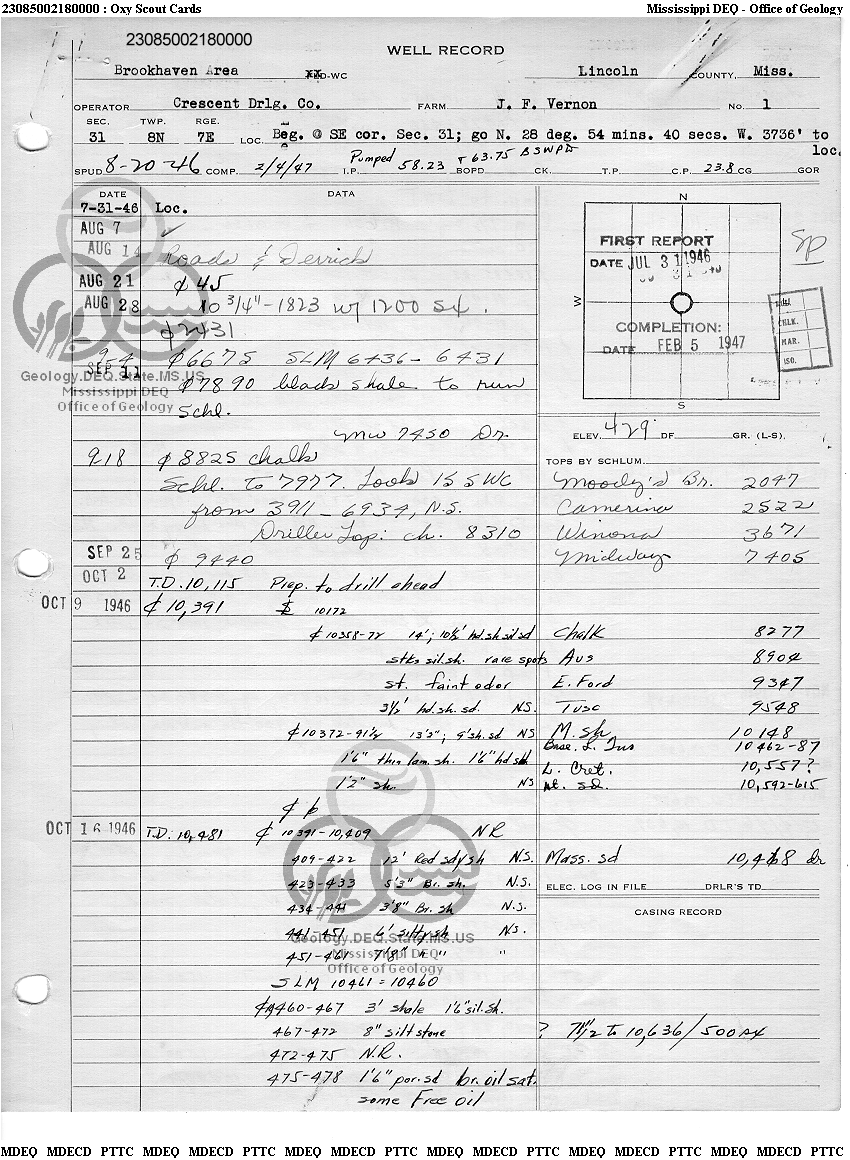 23085002180000 : Oxy Scout Cards Mississippi DEQ - Office of Geology
23085002180000
WELL RECORD
Brookhaven Area -WC Lincoln COUNTY, Miss.
OPERATOR Crescent Drlg. Co. FARM J. F. Vernon No. 1
SEC. TWP. RGE.
31 8N 7E LOC. Beg. @ SE cor. Sec. 31; go N. 28 deg. 54 mins. 40 secs. W. 3736' to
loc.
SPUD 8-20-46 COMP. 2/4/47 I.P. Pumped 58.23 + 63.75 BSWPD BOPD CK. T.P. C.P. 23.8 CG GOR
DATE DATA
7-31-46 Loc.
AUG 7 ✓
AUG 14 Roads & Derrick
AUG 21 ¢ 45
AUG 28 10 3/4"-1823 w/ 1200 sx.
¢ 2431
9-4 ¢ 6675 SLM 6436-6431
SEP 11 ¢ 7890 black shale to run
Schl.
mw 7450 Dr.
9-18 ¢ 8825 chalk
Schl. to 7977. Took 15 SWC
from 3911-6934, N.S.
Driller Top: ch. 8310
SEP 25 ¢ 9440
OCT 2 T.D. 10,115 Prep. to drill ahead
OCT 9 1946 ¢ 10,391 10172
¢ 10358-72 14'; 10½' hd.sh sil sd
stks sil.sh. rare spots
st. faint odor
3½' hd.sh.sd. N.S.
¢ 10372-91½ 13'3"; 9'sh.sd NS
1'6" thin lam.sh. 1'6" hd sh
1'2" sh. NS
OCT 16 1946 T.D. 10,481 ¢ 10391-10,409 NR
409-422 12' Red sdy sh N.S.
423-433 5'3" Br. sh. N.S.
434-441 3'8" Br. sh N.S.
441-451 6' silty sh NS.
451-461 7'8" " " "
SLM 10461 = 10460
460-467 3' shale 1'6" sil.sh.
467-472 8" siltstone
472-475 N.R.
475-478 1'6" por.sd br. oil sat.
some Free oil
N
W
S
FIRST REPORT
DATE JUL 31 1946
COMPLETION:
DATE FEB 5 1947
SP
CHLK.
MAR.
ISO.
ELEV. 429 DF GR. (L-S).
TOPS BY SCHLUM.
Moody's Br. 2047
Camerina 2522
Winona 3671
Midway 7405
Chalk 8277
Aus 8904
E. Ford 9347
Tusc 9548
M. sh 10148
Base. L. Tus 10462-87
L. Cret. 10,557?
10,592-615
Mass. sd dr
ELEC. LOG IN FILE DRLR'S TD
CASING RECORD
? 7"½ to 10,636/500 sx
Geology.DEQ.State.MS.US
Mississippi DEQ
Office of Geology
Geology.DEQ.State.MS.US
Mississippi DEQ
Office of Geology
MDEQ MDECD PTTC MDEQ MDECD PTTC MDEQ MDECD PTTC MDEQ MDECD PTTC MDEQ MDECD PTTC MDEQ MDECD PTTC